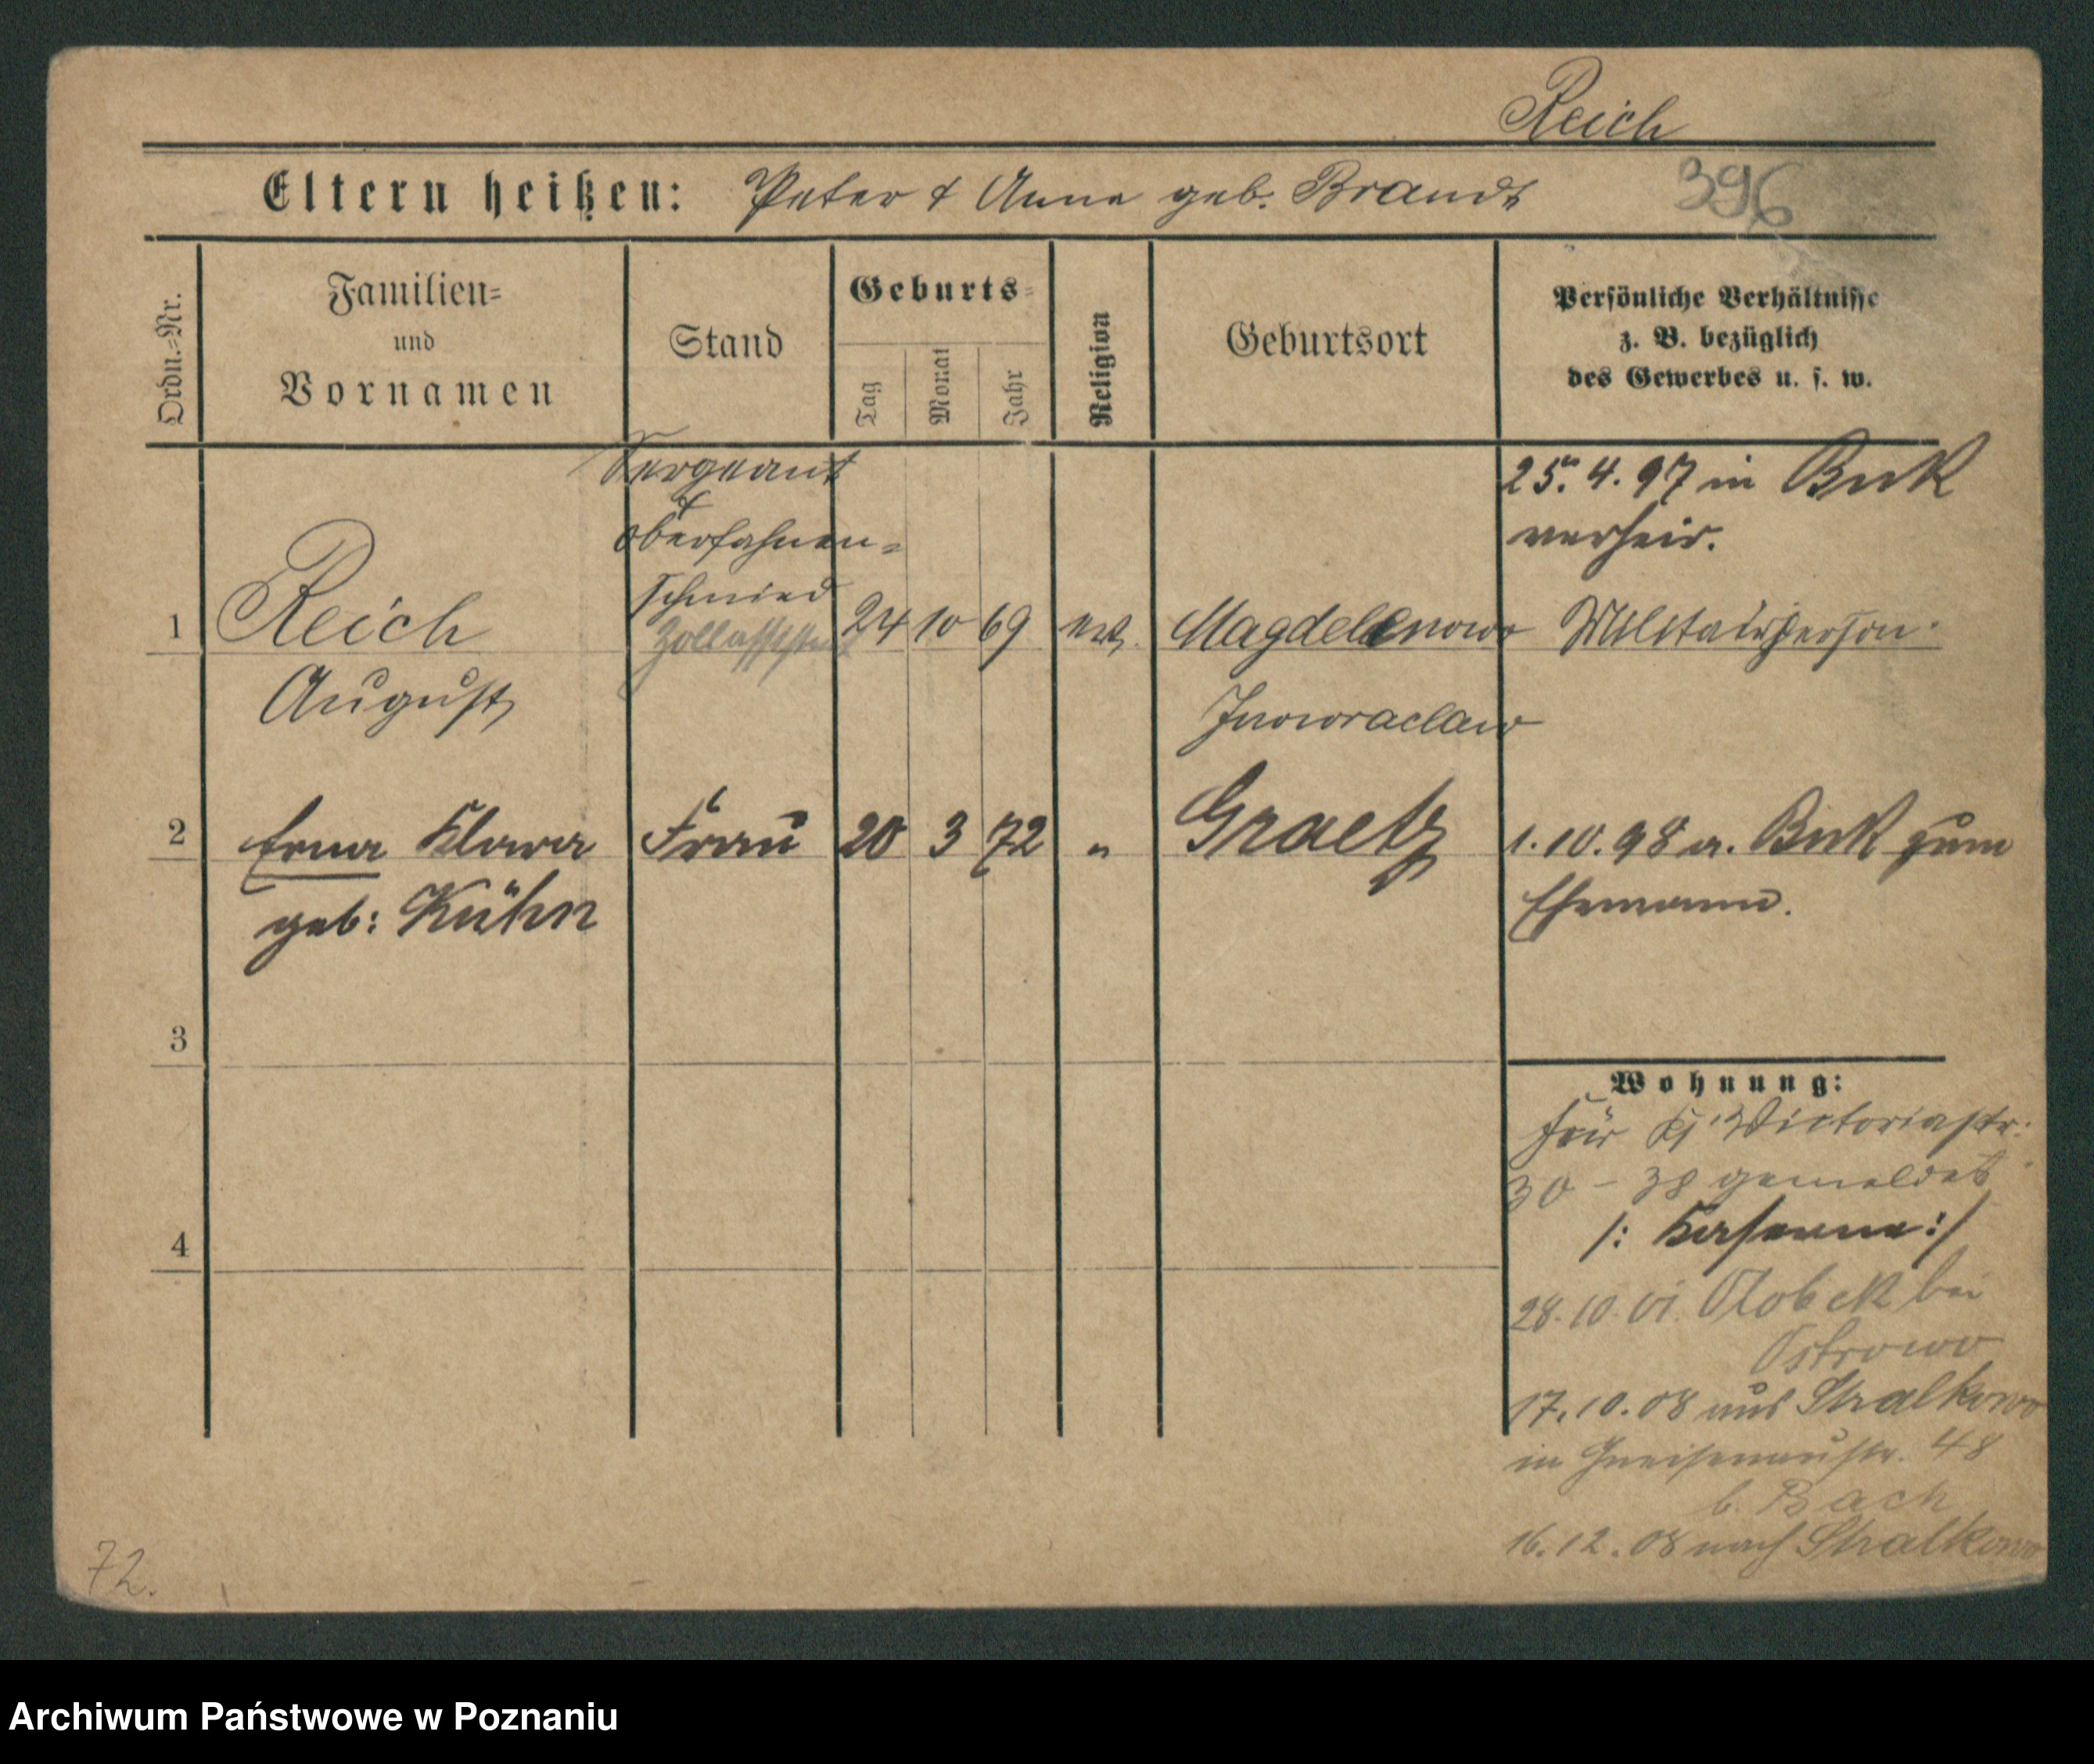 Reich
Eltern heißen: Peter & Anna geb. Brandt
396
Ordn.-Nr.
Familien-
und
Vornamen
Stand
Geburts-
Tag
Monat
Jahr
Religion
Geburtsort
Persönliche Verhältnisse
z. B. bezüglich
des Gewerbes u. s. w.
Sergeant
&
Oberfahnen-
schmied
25.4.97 in Buk
verheir.
1 Reich 24 10 69 ev. Magdalenowo Militairperson.
August
Inowraclaw
2 Erna Klara Frau 20 3 72 " Graetz 1.10.98 a. Buk zum
geb: Kühn
Ehemann.
3
4
Wohnung:
für Victoriastr.
30 - 38 gemeldet
/: Kaserne :/
28.10.01. Olobok bei
Ostrowo
17.10.08 aus Stralkowo
in Gneisenaustr. 48
b. Bach
16.12.08 nach Stralkowo
72.
Archiwum Państwowe w Poznaniu